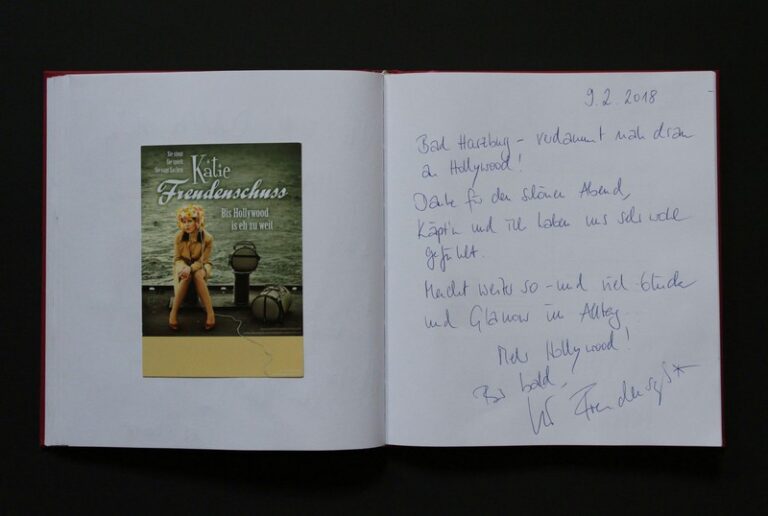 Sie singt
Sie spielt
Sie sagt Sachen
Katie
Freudenschuss
Bis Hollywood
is eh zu weit
9.2.2018
Bad Harzburg – verdammt nah dran
an Hollywood!
Danke für den schönen Abend,
Käpt'n und ich haben uns sehr wohl
gefühlt.
Macht weiter so – und viel
und Glamour im Alltag.
Mehr Hollywood!
Bis bald,
Freudenschuss